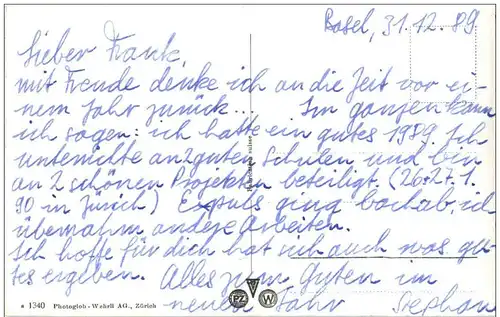 Basel, 31.12.89
Lieber Frank,
mit Freude denke ich an die Zeit vor ei-
nem Jahr zurück... Im ganzen kann
ich sagen: ich hatte ein gutes 1989. Ich
unterrichte an 2 guten Schulen und bin
an 2 schönen Projekten beteiligt. (26.+27.1.
90 in Zürich) ging bachab, ich
übernahm andere Arbeiten.
Ich hoffe für dich hat sich auch was gu-
tes ergeben. Alles zum Guten im
neuen Jahr Stephan
1340 Photoglob-Wehrli AG., Zürich
PZ W